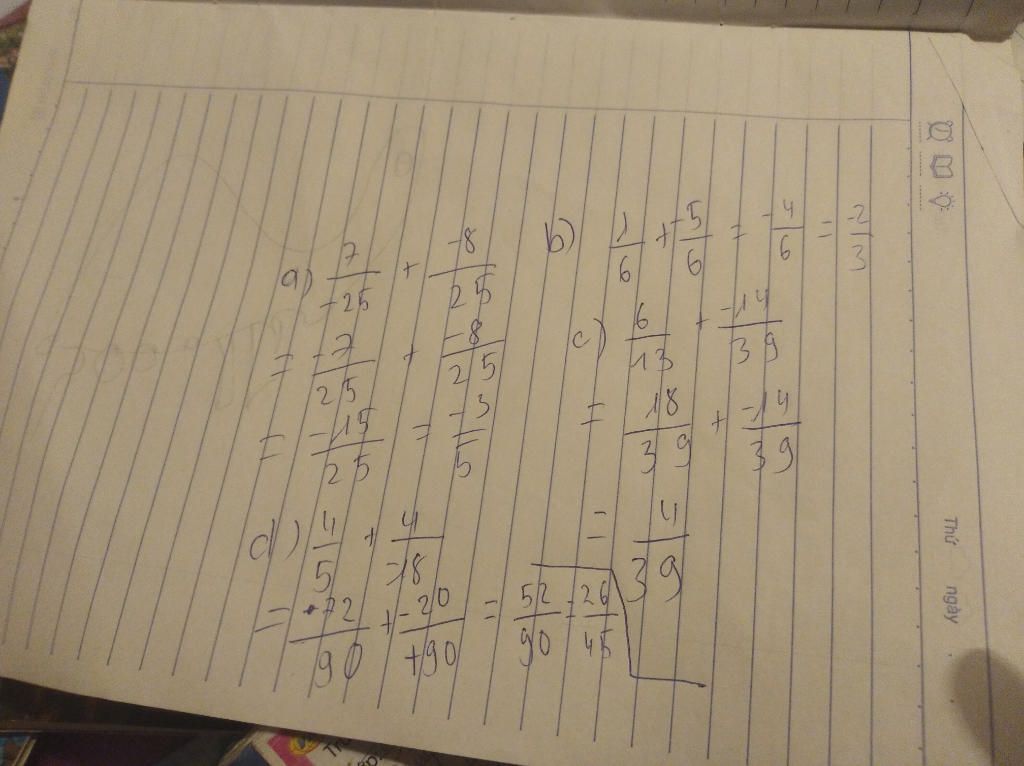 a) 7/-25 + -8/25
= -7/25 + -8/25
= -15/25 = -3/5
b) 1/6 + -5/6 = -4/6 = -2/3
c) 6/13 + -14/39
= 18/39 + -14/39
= 4/39
d) 4/5 + 4/-18
= 72/90 + -20/+90 = 52/90 = 26/45
Thứ ngày